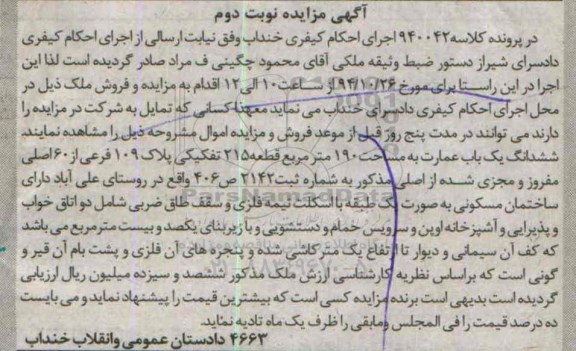 آگهی مزایده نوبت دوم
در پرونده کلاسه ۹۴۰۰۴۲ اجرای احکام کیفری خنداب وفق نیابت ارسالی از اجرای احکام کیفری
دادسرای شیراز دستور ضبط وثیقه ملکی آقای محمود چگینی ف مراد صادر گردیده است لذا این
اجرا در این راستا برای مورخ ۹۴/۱۰/۲۶ از ساعت ۱۰ الی ۱۲ اقدام به مزایده و فروش ملک ذیل در
محل اجرای احکام کیفری دادسرای خنداب می نماید معهذا کسانی که تمایل به شرکت در مزایده را
دارند می توانند در مدت پنج روز قبل از موعد فروش و مزایده اموال مشروحه ذیل را مشاهده نمایند.
ششدانگ یک باب عمارت به مساحت ۱۹۰ متر مربع قطعه ۲۱۵ تفکیکی پلاک ۱۰۹ فرعی از ۶۰ اصلی
مفروز و مجزی شده از اصلی مذکور به شماره ثبت ۲۱۴۲ ص ۴۰۶ واقع در روستای علی آباد دارای
ساختمان مسکونی به صورت یک طبقه با اسکلت نیمه فلزی و سقف طاق ضربی شامل دو اتاق خواب
و پذیرایی و آشپزخانه اوپن و سرویس حمام و دستشویی و با زیربنای یکصد و بیست مترمربع می باشد
که کف آن سیمانی و دیوار تا ارتفاع یک متر کاشی شده و پنجره های آن فلزی و پشت بام آن قیر و
گونی است که براساس نظریه کارشناسی ارزش ملک مذکور ششصد و سیزده میلیون ریال ارزیابی
گردیده است بدیهی است برنده مزایده کسی است که بیشترین قیمت را پیشنهاد نماید و می بایست
ده درصد قیمت را فی المجلس و مابقی را ظرف یک ماه تادیه نماید.
۴۶۶۳ دادستان عمومی و انقلاب خنداب
ParsNamadData